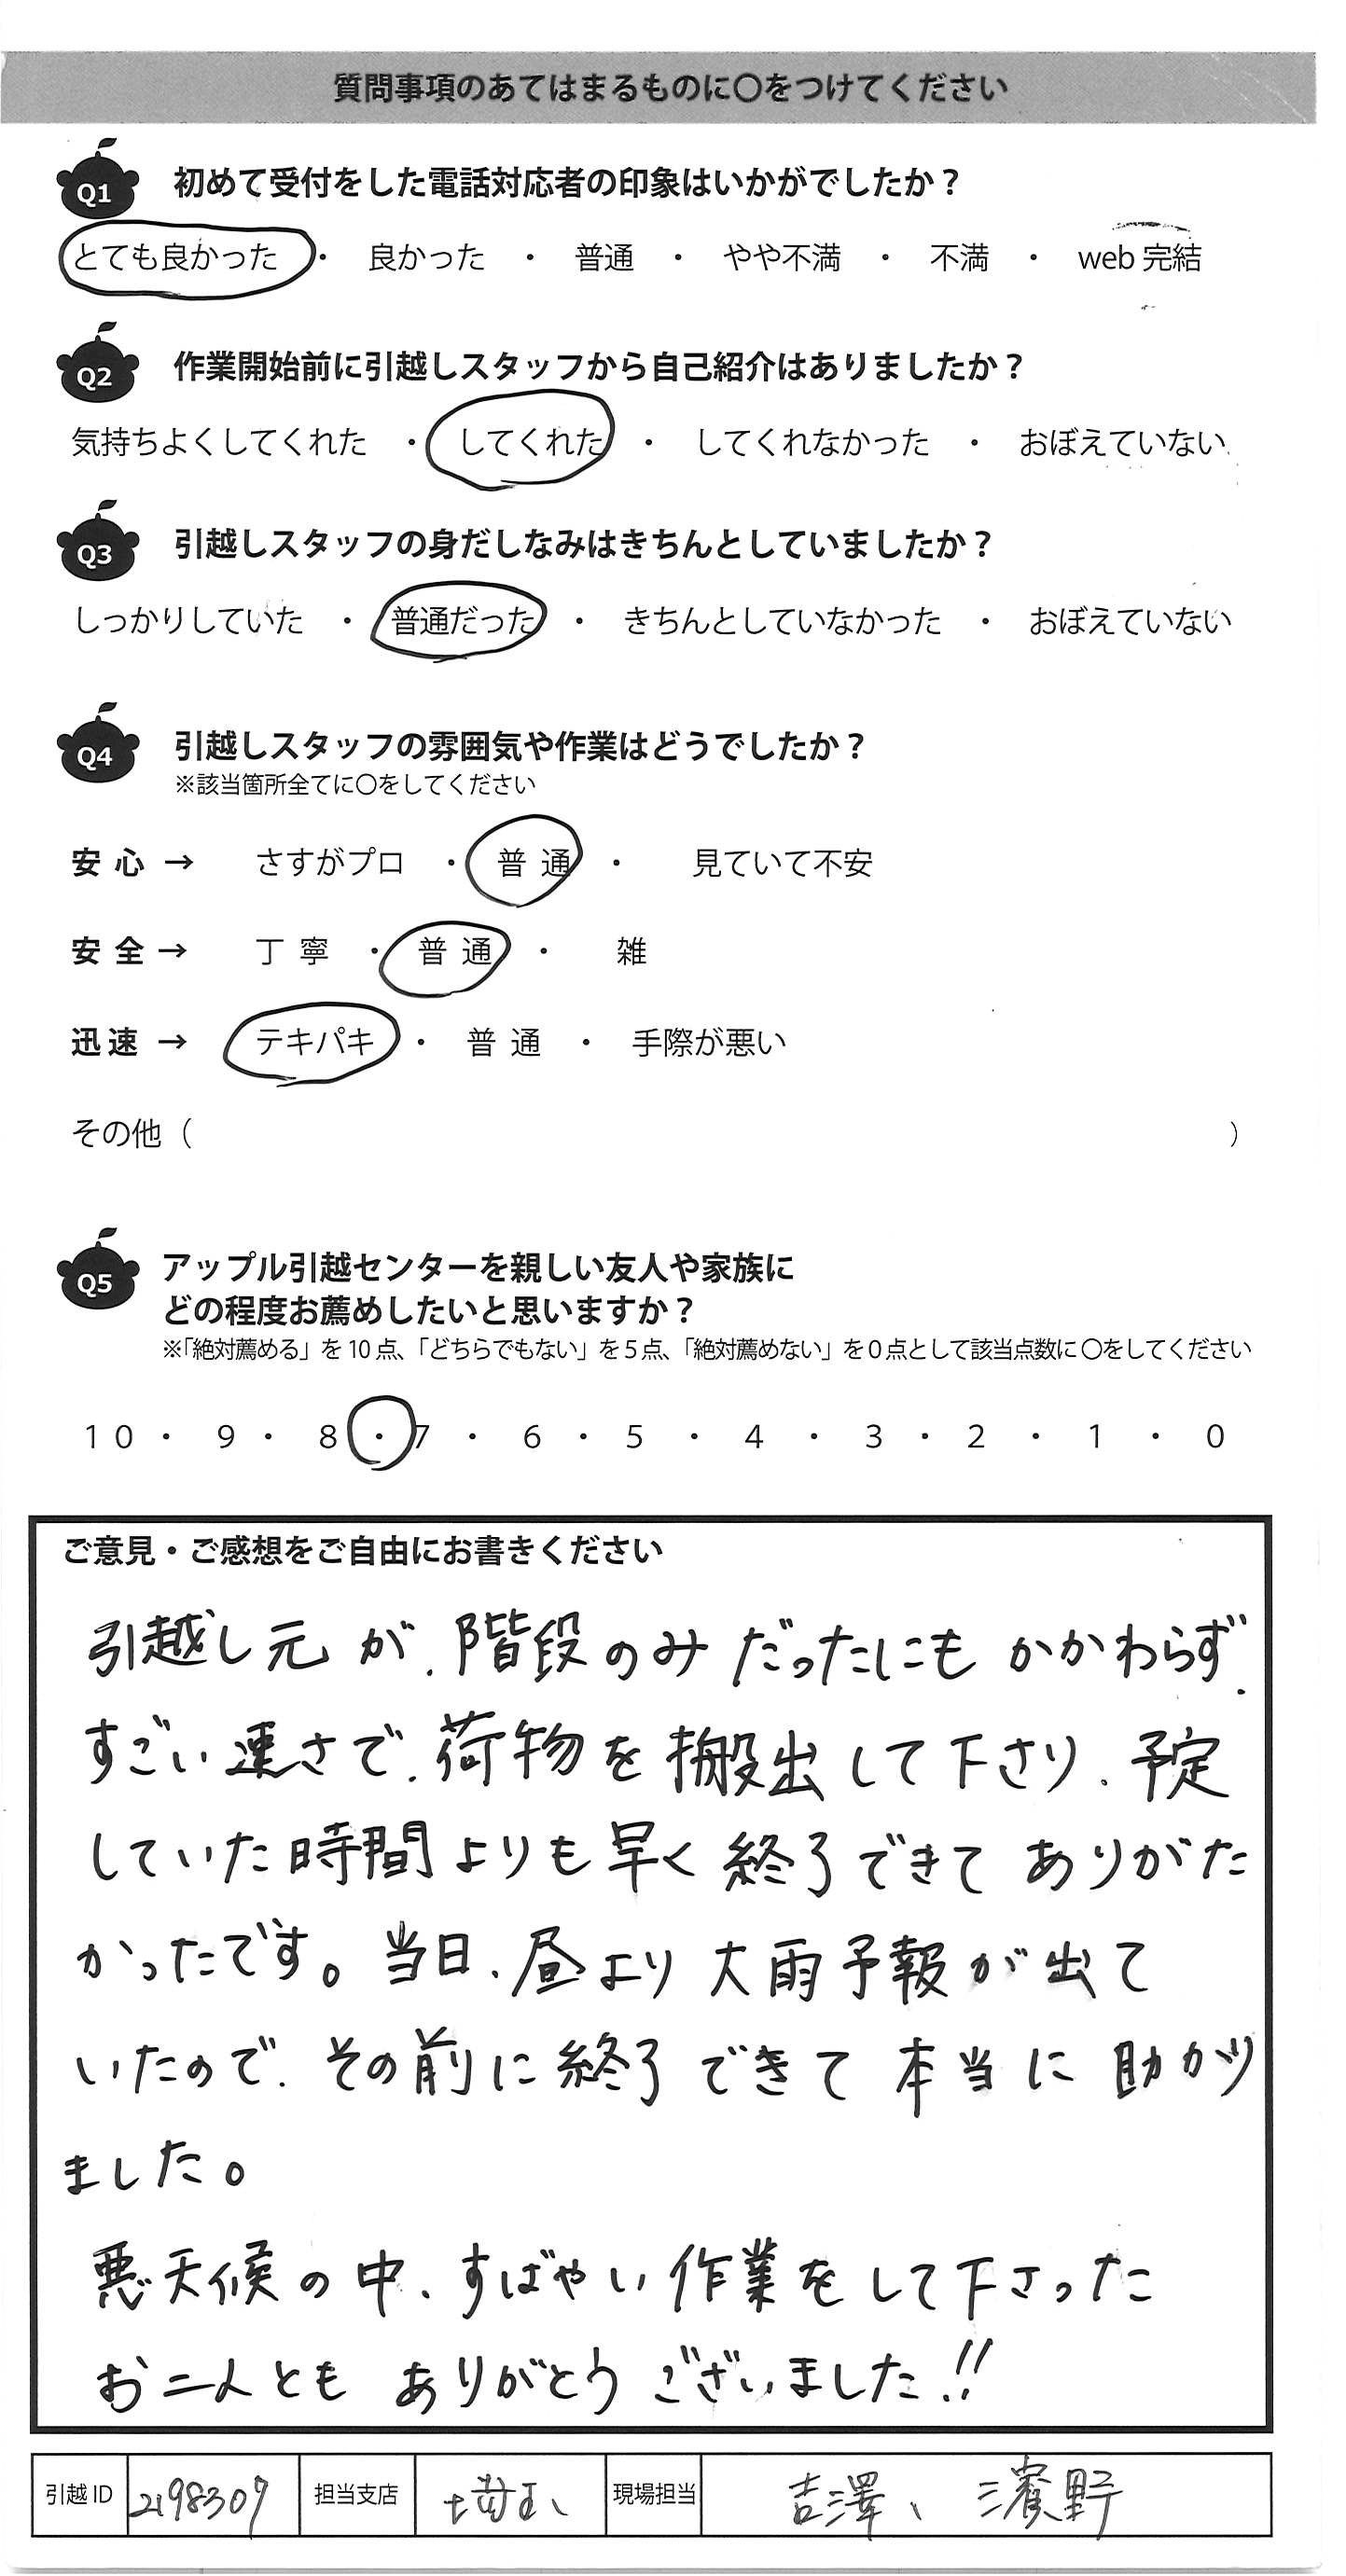 質問事項のあてはまるものに〇をつけてください
Q1 初めて受付をした電話対応者の印象はいかがでしたか？
とても良かった ・ 良かった ・ 普通 ・ やや不満 ・ 不満 ・ web 完結
Q2 作業開始前に引越しスタッフから自己紹介はありましたか？
気持ちよくしてくれた ・ してくれた ・ してくれなかった ・ おぼえていない
Q3 引越しスタッフの身だしなみはきちんとしていましたか？
しっかりしていた ・ 普通だった ・ きちんとしていなかった ・ おぼえていない
Q4 引越しスタッフの雰囲気や作業はどうでしたか？
※該当箇所全てに〇をしてください
安 心 → さすがプロ ・ 普 通 ・ 見ていて不安
安 全 → 丁 寧 ・ 普 通 ・ 雑
迅 速 → テキパキ ・ 普 通 ・ 手際が悪い
その他（ ）
Q5 アップル引越センターを親しい友人や家族に
どの程度お薦めしたいと思いますか？
※「絶対薦める」を 10 点、「どちらでもない」を 5 点、「絶対薦めない」を 0 点として該当点数に 〇をしてください
10 ・ 9 ・ 8 ・ 7 ・ 6 ・ 5 ・ 4 ・ 3 ・ 2 ・ 1 ・ 0
ご意見・ご感想をご自由にお書きください
引越し元が、階段のみだったにもかかわらず、
すごい速さで、荷物を搬出して下さり、予定
していた時間よりも早く終了できてありがた
かったです。当日、昼より大雨予報が出て
いたので、その前に終了できて本当に助かり
ました。
悪天候の中、すばやい作業をして下さった
お二人ともありがとうございました!!
引越 ID 2198307 担当支店 現場担当 吉澤、濱野